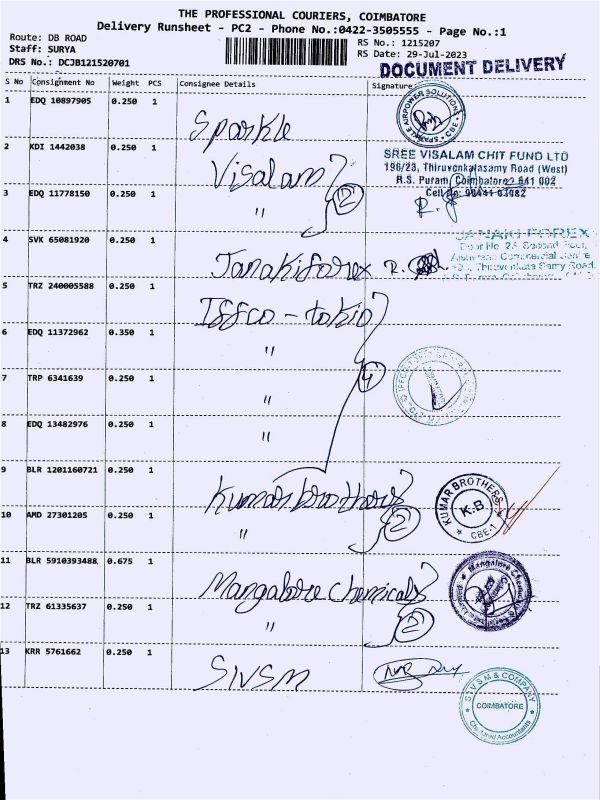 THE PROFESSIONAL COURIERS, COIMBATORE
Delivery Runsheet - PC2 - Phone No.:0422-3505555 - Page No.:1
Route: DB ROAD
RS No.: 1215207
Staff: SURYA
RS Date: 29-Jul-2023
DRS No.: DCJB121520701
DOCUMENT DELIVERY
S No Consignment No Weight PCS Consignee Details Signature
1 EDQ 10897905 0.250 1 Sparkle
SPARKLE AIRPOWER SOLUTION CBE
2 KDI 1442038 0.250 1 Visalam
SREE VISALAM CHIT FUND LTD
196/23, Thiruvenkatasamy Road (West)
R.S. Puram, Coimbatore - 641 002
Cell No: 90441 03982
3 EDQ 11778150 0.250 1 " 2
4 SVK 65081920 0.250 1 Janakiforex
JANAKI FOREX
Door No. 23, Second Floor,
Commercial Centre
Thiruvenkata Samy Road,
5 TRZ 240005588 0.250 1 Iffco - tokio
6 EDQ 11372962 0.350 1 "
7 TRP 6341639 0.250 1 " 4
8 EDQ 13482976 0.250 1 "
9 BLR 1201160721 0.250 1 Kumar brothers
KUMAR BROTHERS K.B. CBE-1
10 AMD 27301205 0.250 1 " 2
11 BLR 5910393488, 0.675 1 Mangalore Chemicals
Mangalore Chemicals
12 TRZ 61335637 0.250 1 " 2
13 KRR 5761662 0.250 1 SIVSM
S I V S M & COMPANY
COIMBATORE
Chartered Accountants